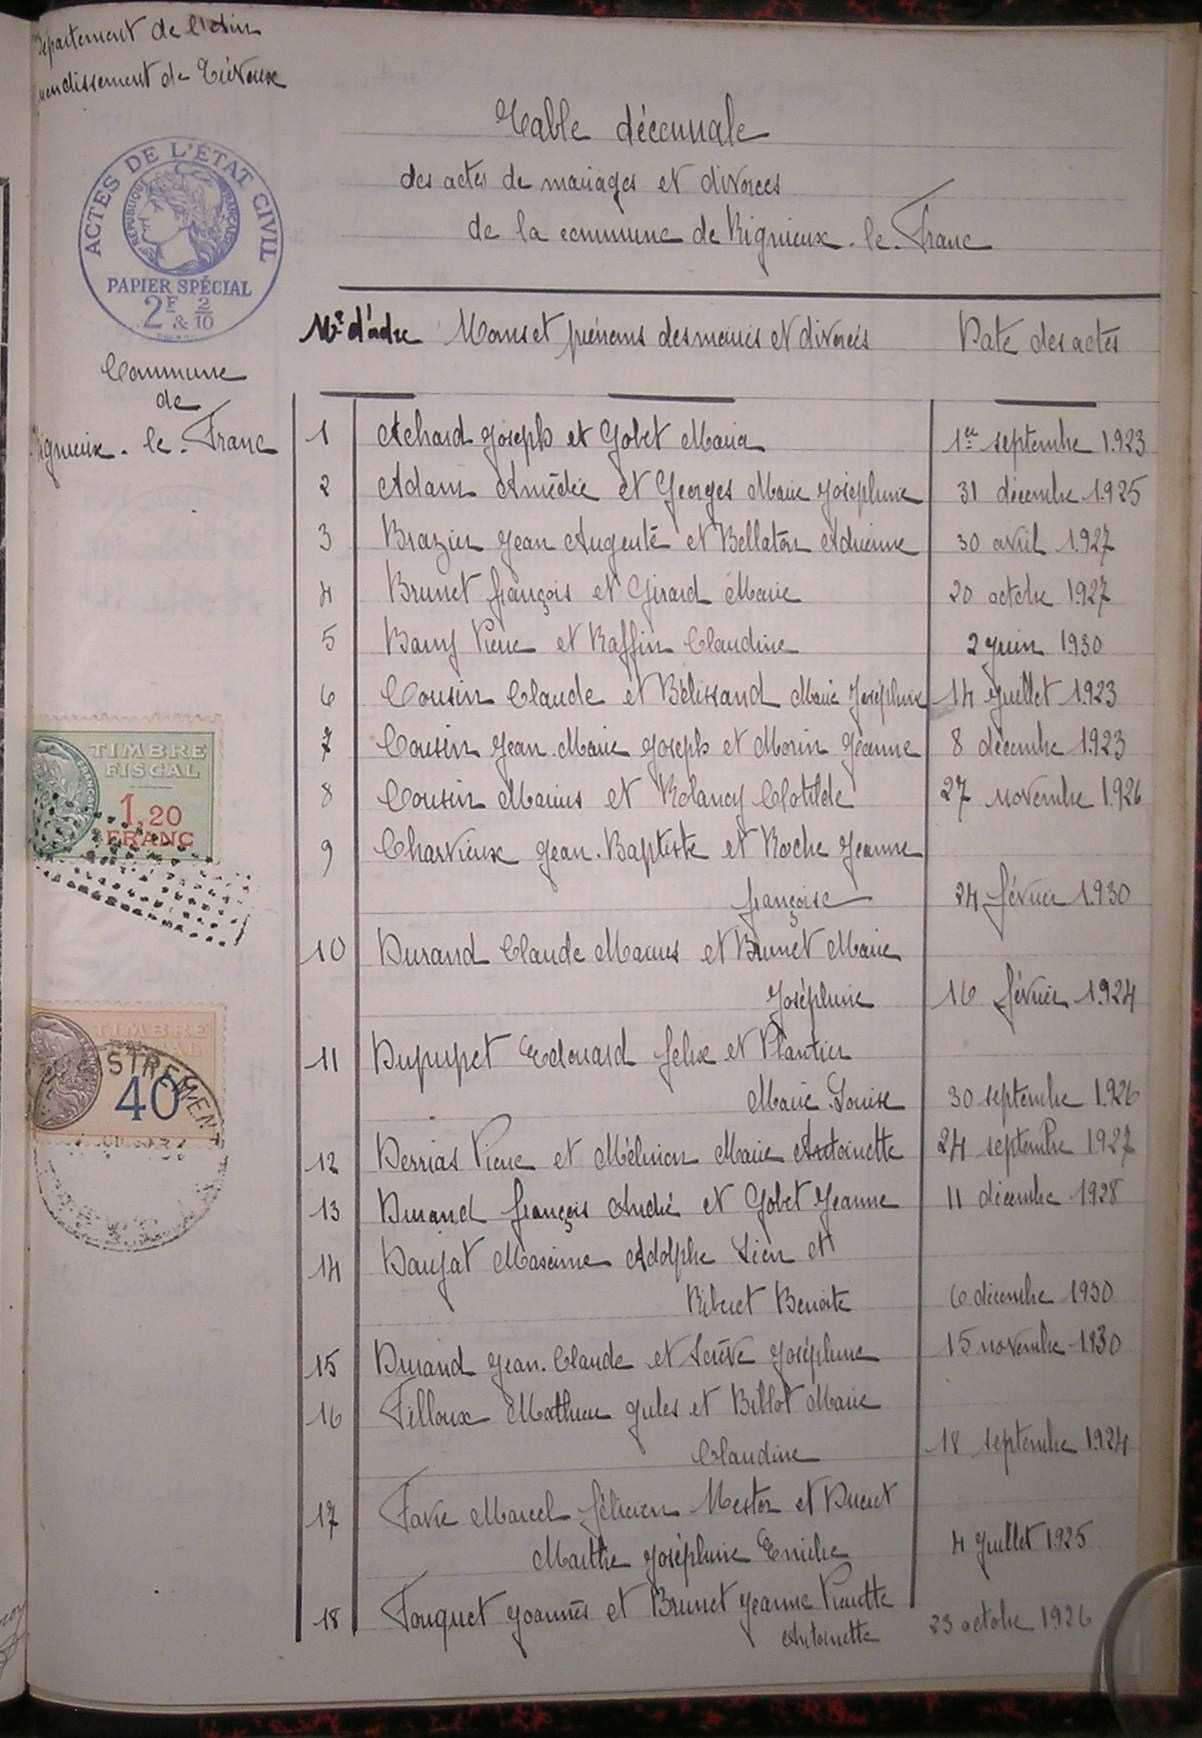 Département de l'Ain
Arrondissement de Trévoux
Table décennale
des actes de mariages et divorces
de la commune de Rignieux-le-Franc
ACTES DE L'ÉTAT CIVIL
RÉPUBLIQUE FRANÇAISE
PAPIER SPÉCIAL
2F & 2/10
Commune
de
Rignieux-le-Franc
Nº d'ordre Noms et prénoms des mariés et divorcés Date des actes
1 Achard Joseph et Gobet Maria 1er septembre 1923
2 Adam Amédée et Georges Marie Joséphine 31 décembre 1925
3 Brazier Jean Auguste et Bellaton Adrienne 30 avril 1927
4 Brunet françois et Girard Marie 20 octobre 1927
5 Pierre et Raffin Claudine 2 juin 1930
6 Cousin Claude et Bélissand Marie Joséphine 14 juillet 1923
7 Cousin Jean Marie Joseph et Morin Jeanne 8 décembre 1923
8 Cousin Marius et Rolancy Clotilde 27 novembre 1926
9 Charvieux Jean-Baptiste et Roche Jeanne
françoise 24 février 1930
10 Durand Claude Marius et Brunet Marie
Joséphine 16 février 1924
11 Dupupet Edouard felix et Plantier
Marie Louise 30 septembre 1926
12 Derrias Pierre et Mélinon Marie Antoinette 24 septembre 1927
13 Durand françois André et Gobet Jeanne 11 décembre 1928
14 Daujat Maxime Adolphe Léon et
Benoite 6 décembre 1930
15 Durand Jean-Claude et Séève Joséphine 15 novembre 1930
16 Filloux Mathieu Jules et Billot Marie
Claudine 18 septembre 1924
17 Favre Marcel félicien Nestor et Ducret
Marthe Joséphine Emilie 4 juillet 1925
18 Fouquet Joannès et Brunet Jeanne Pierrette
Antoinette 23 octobre 1926
TIMBRE
FISCAL
1,20
FRANC
TIMBRE
40